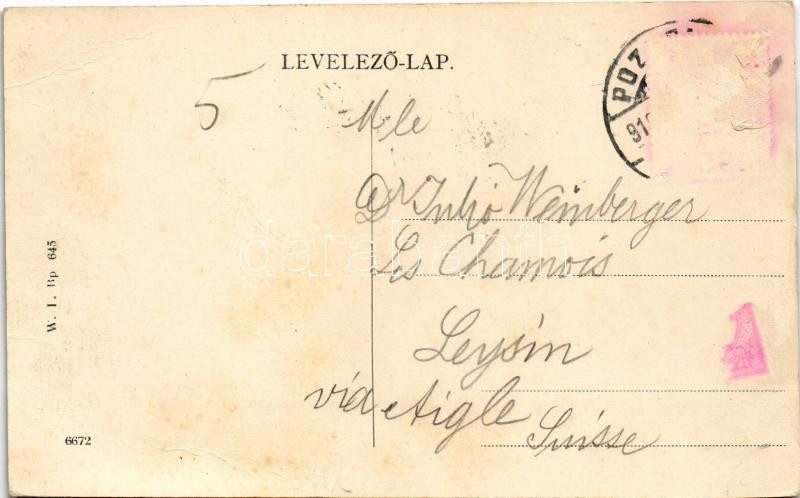 LEVELEZŐ-LAP.
5
Mle
Dr Julio Weinberger
Les Chamois
Leysin
via Aigle
Suisse
POZ
910
1
W. I. Bp 645
6672
darabanth